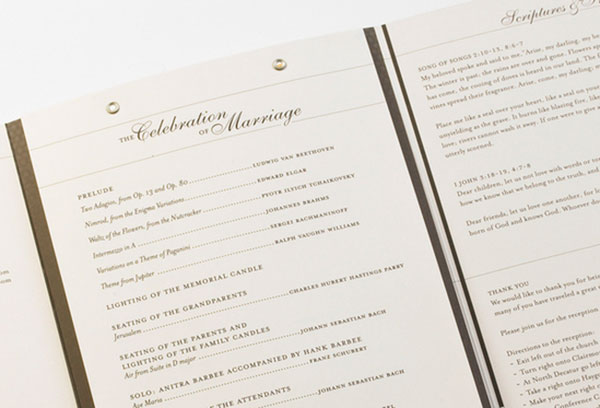 THE Celebration OF Marriage
PRELUDE
Two Adagios, from Op. 13 and Op. 80 ... LUDWIG VAN BEETHOVEN
Nimrod, from the Enigma Variations ... EDWARD ELGAR
Waltz of the Flowers, from the Nutcracker ... PYOTR ILYICH TCHAIKOVSKY
Intermezzo in A ... JOHANNES BRAHMS
Variations on a Theme of Paganini ... SERGEI RACHMANINOFF
Theme from Jupiter ... RALPH VAUGHN WILLIAMS
LIGHTING OF THE MEMORIAL CANDLE
SEATING OF THE GRANDPARENTS
Jerusalem ... CHARLES HUBERT HASTINGS PARRY
SEATING OF THE PARENTS AND
LIGHTING OF THE FAMILY CANDLES
Air from Suite in D major ... JOHANN SEBASTIAN BACH
SOLO: ANITRA BARBEE ACCOMPANIED BY HANK BARBEE
Ave Maria ... FRANZ SCHUBERT
OF THE ATTENDANTS
JOHANN SEBASTIAN BACH
Scriptures &
SONG OF SONGS 2:10-13, 8:6-7
My beloved spoke and said to me, "Arise, my darling, my
The winter is past; the rains are over and gone. Flowers
has come, the cooing of doves is heard in our land. The
vines spread their fragrance. Arise, come, my darling;
Place me like a seal over your heart, like a seal on your
unyielding as the grave. It burns like blazing fire, like
love; rivers cannot wash it away. If one were to give
utterly scorned.
1 JOHN 3:18-19, 4:7-8
Dear children, let us not love with words or
how we know that we belong to the truth, and
Dear friends, let us love one another, for
born of God and knows God. Whoever
THANK YOU
We would like to thank you for
many of you have traveled a great
Please join us for the reception
Directions to the reception:
- Exit left out of the church
- Turn right onto Clairmont
- At North Decatur go left
- Take a right onto
- Turn right onto
- Conference